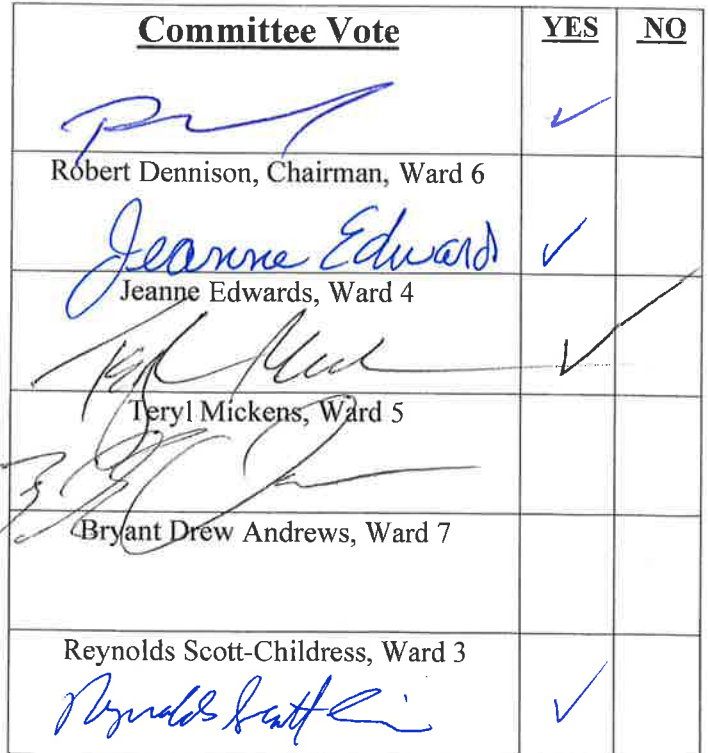 Committee Vote YES NO
✓
Robert Dennison, Chairman, Ward 6
Jeanne Edwards ✓
Jeanne Edwards, Ward 4
✓
Teryl Mickens, Ward 5
Bryant Drew Andrews, Ward 7
Reynolds Scott-Childress, Ward 3
Reynolds Scott ✓